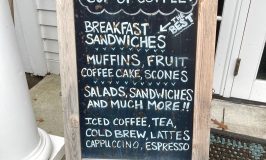 CUP OF COFFEE
BREAKFAST
SANDWICHES
THE
BEST
MUFFINS, FRUIT
COFFEE CAKE, SCONES
SALADS, SANDWICHES
AND MUCH MORE!!
ICED COFFEE, TEA,
COLD BREW, LATTES
CAPPUCCINO, ESPRESSO